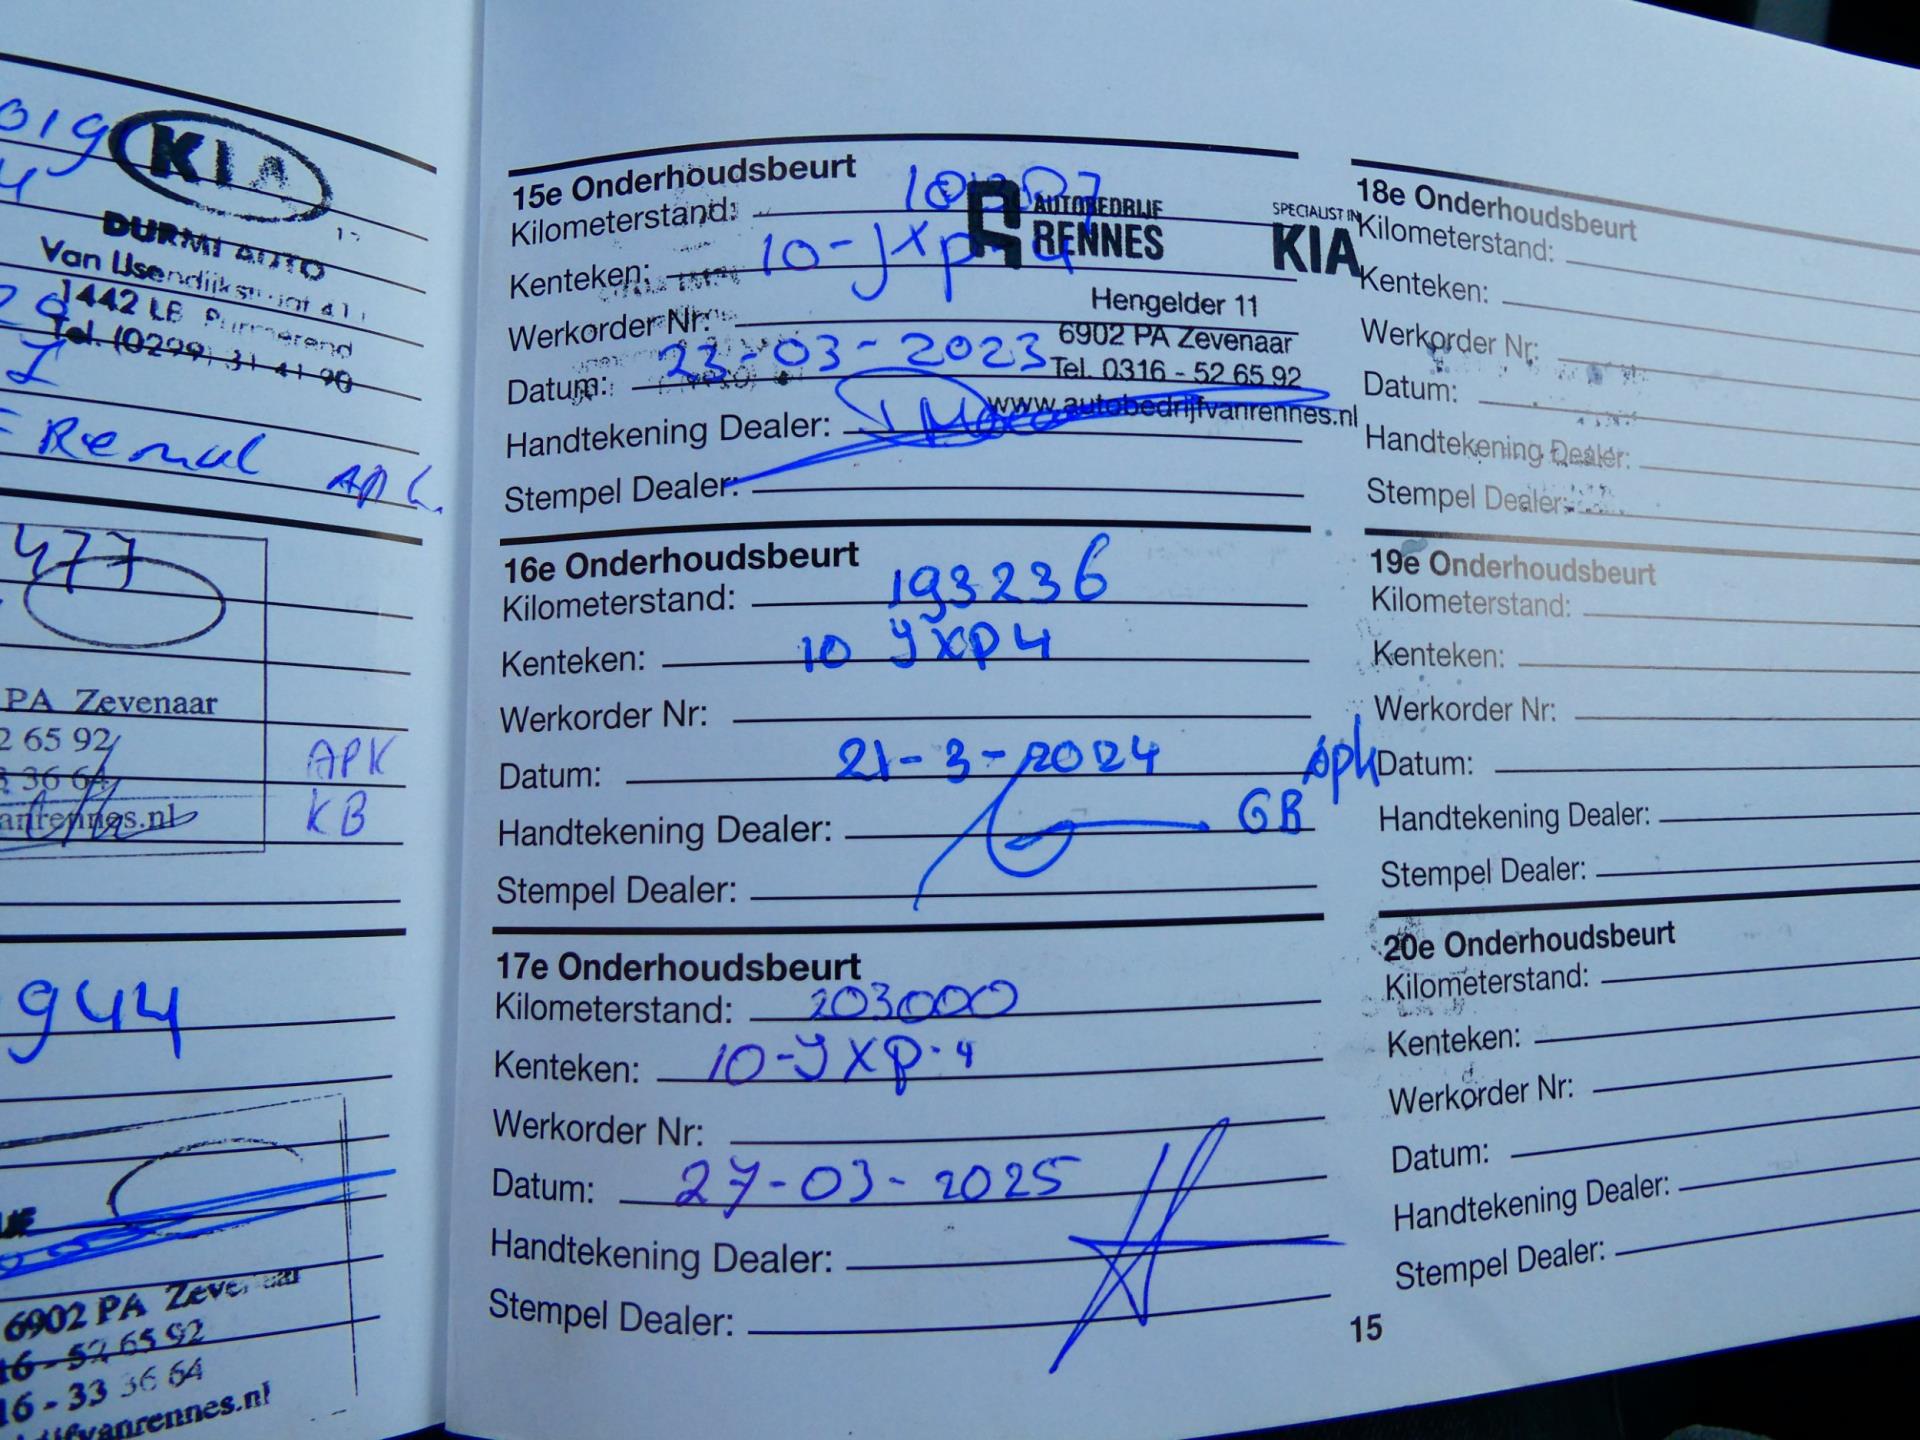 019
KIA
DURMI AUTO
Van IJsendijkstraat 411
1442 LB Purmerend
Tel. (0299) 31 41 90
Remul APK
477
PA Zevenaar
2 65 92
3 36 64
anrennes.nl
APK
KB
944
6902 PA Zevenaar
16 - 52 65 92
16 - 33 36 64
drijfvanrennes.nl
15e Onderhoudsbeurt
Kilometerstand:
Kenteken: 10-JXP-4
Werkorder Nr:
Datum: 23-03-2023
Handtekening Dealer:
Stempel Dealer:
AUTOBEDRIJF
RENNES
SPECIALIST IN
KIA
Hengelder 11
6902 PA Zevenaar
Tel. 0316 - 52 65 92
www.autobedrijfvanrennes.nl
16e Onderhoudsbeurt
Kilometerstand: 193236
Kenteken: 10 JXP4
Werkorder Nr:
Datum: 21-3-2024
Handtekening Dealer: GB apk
Stempel Dealer:
17e Onderhoudsbeurt
Kilometerstand: 203000
Kenteken: 10-JXP-4
Werkorder Nr:
Datum: 27-03-2025
Handtekening Dealer:
Stempel Dealer:
18e Onderhoudsbeurt
Kilometerstand:
Kenteken:
Werkorder Nr:
Datum:
Handtekening Dealer:
Stempel Dealer:
19e Onderhoudsbeurt
Kilometerstand:
Kenteken:
Werkorder Nr:
Datum:
Handtekening Dealer:
Stempel Dealer:
20e Onderhoudsbeurt
Kilometerstand:
Kenteken:
Werkorder Nr:
Datum:
Handtekening Dealer:
Stempel Dealer:
15